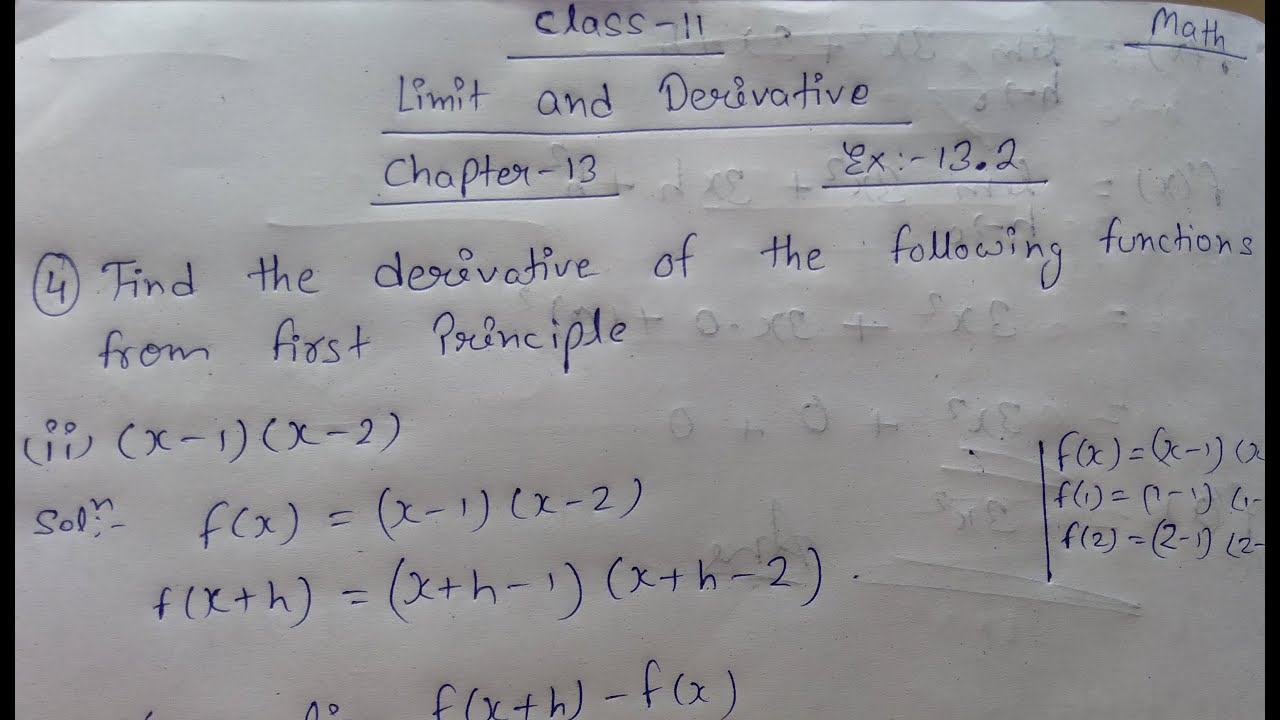 Class-11
Math
Limit and Derivative
Chapter-13
Ex:-13.2
④ Find the derivative of the following functions
from first Principle
(ii) (x-1)(x-2)
Solⁿ:- f(x) = (x-1)(x-2)
f(x+h) = (x+h-1)(x+h-2).
f(x) = (x-1)(x
f(1) = (1-1)(1-
f(2) = (2-1)(2-
f(x+h) - f(x)